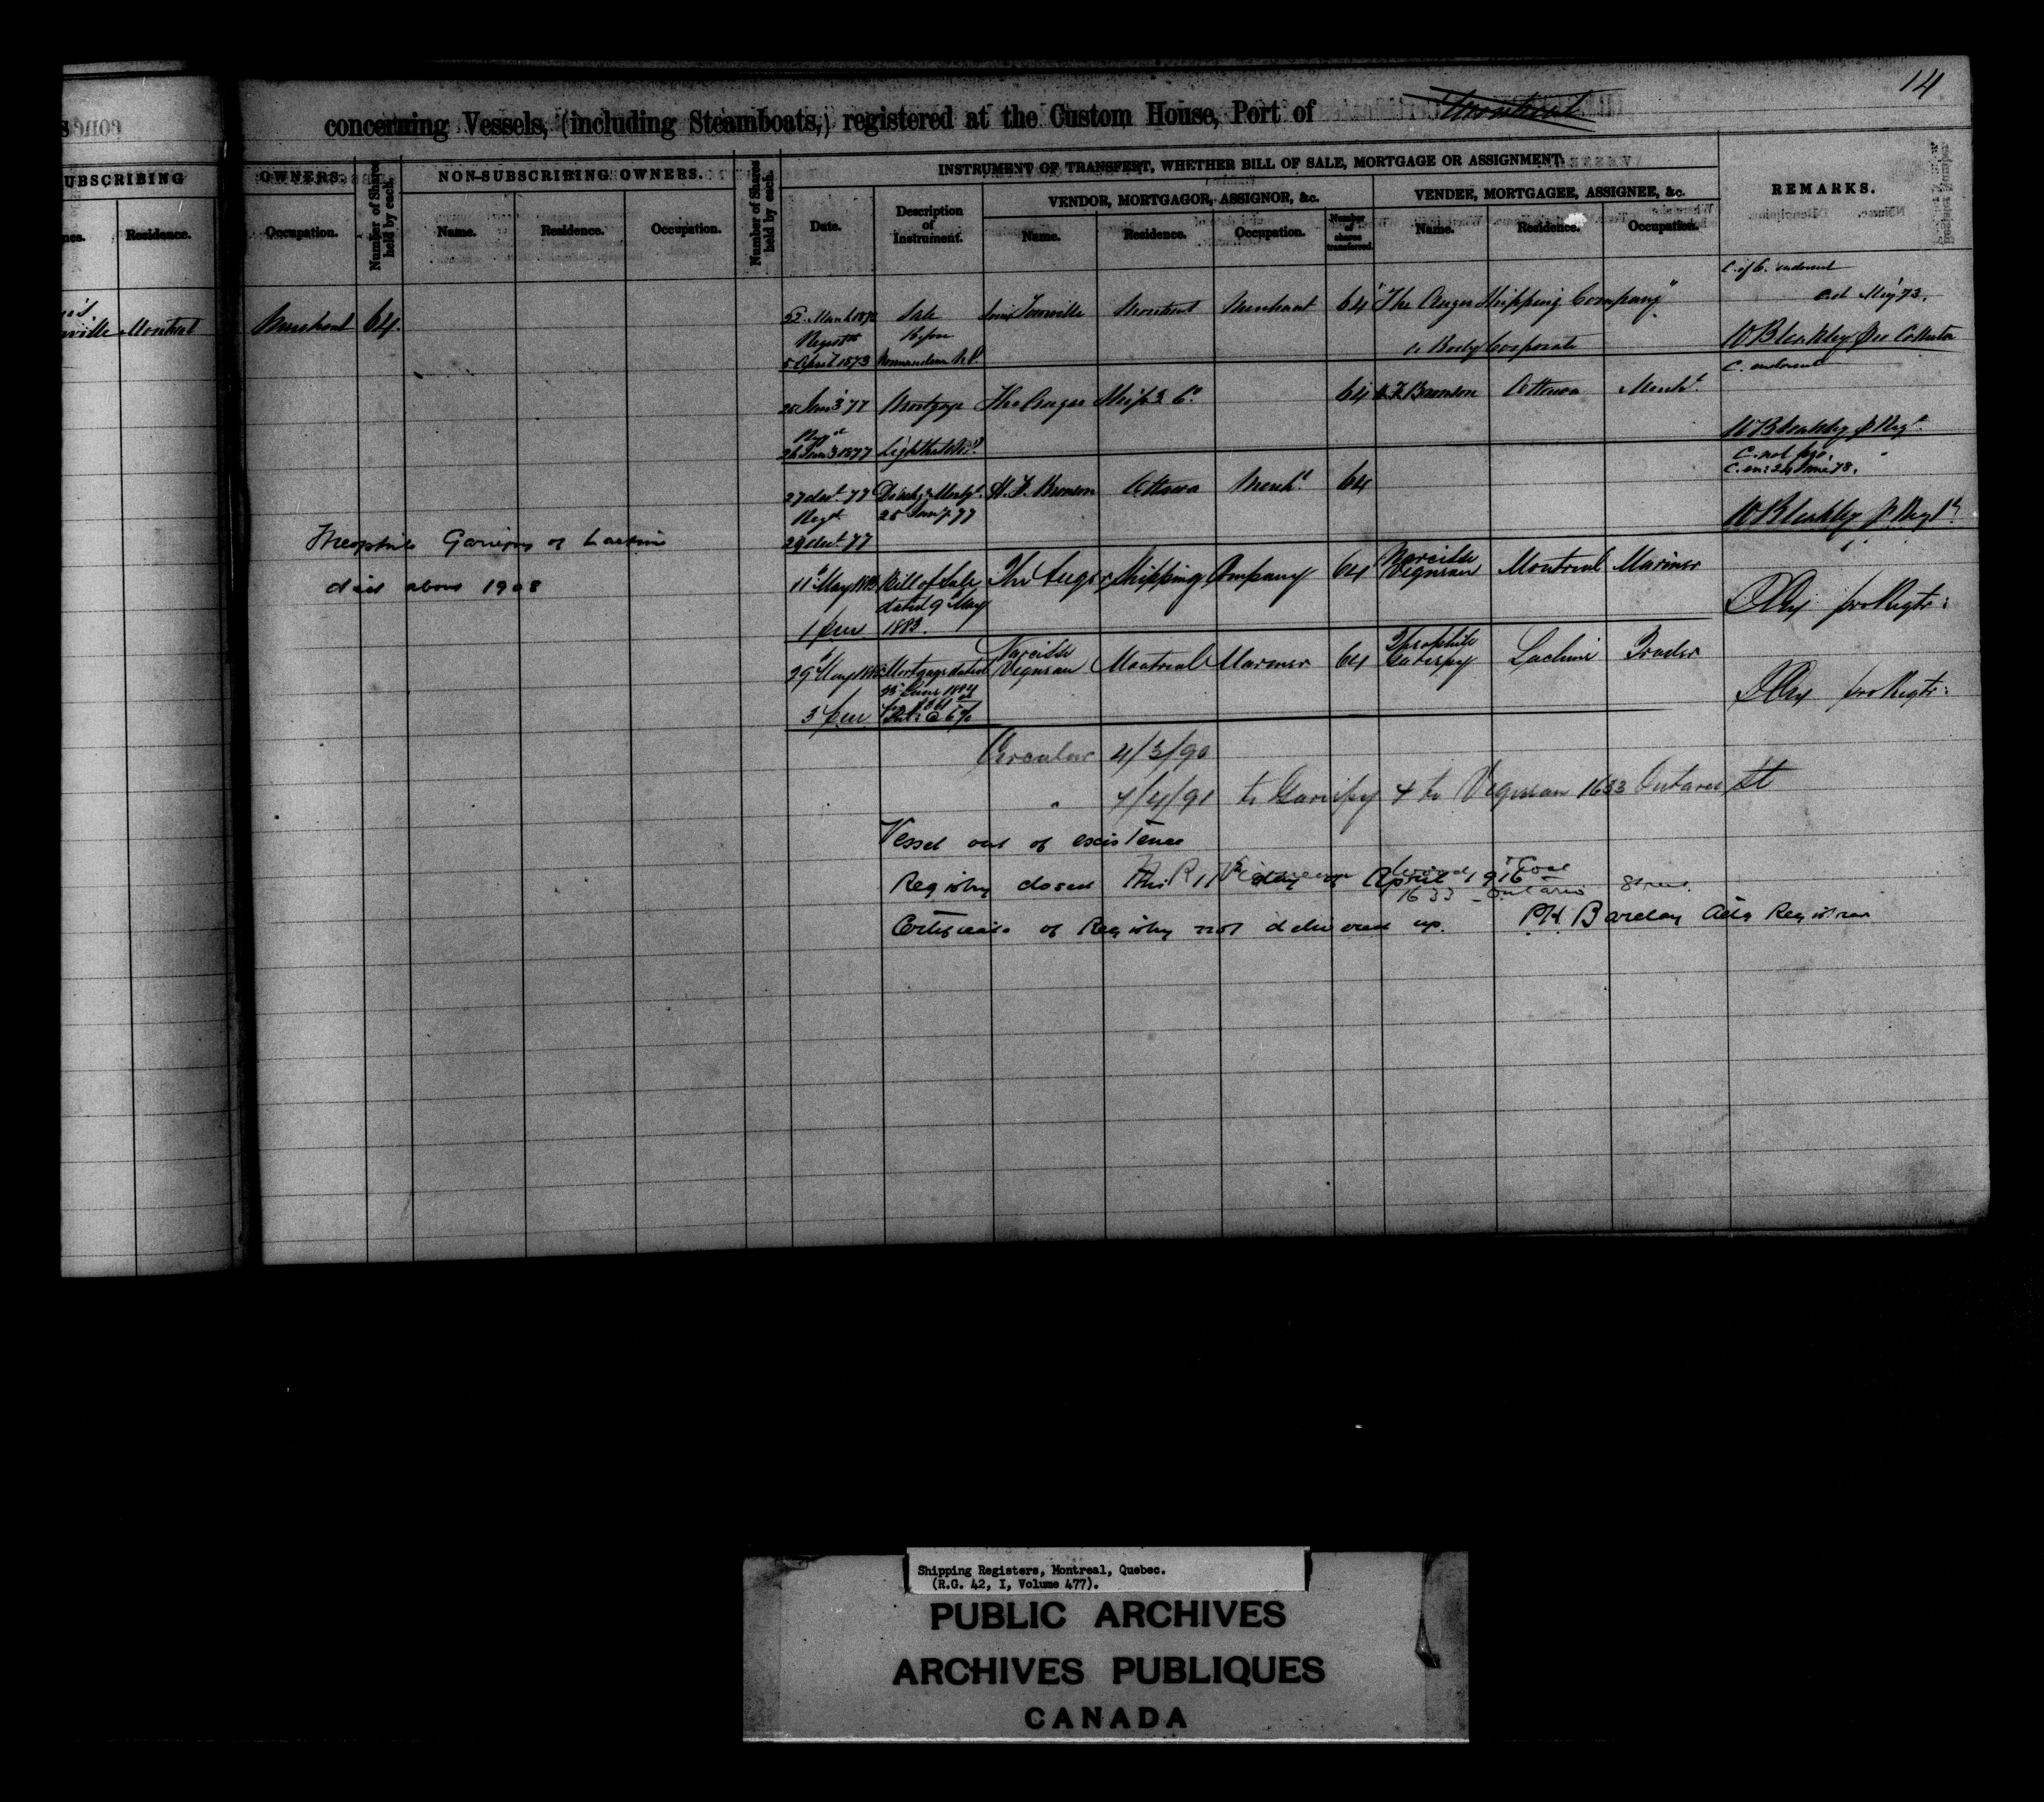 14
concerning Vessels, (including Steamboats,) registered at the Custom House, Port of Montreal
UBSCRIBING
OWNERS.
Number of Shares held by each.
NON-SUBSCRIBING OWNERS.
Number of Shares held by each.
INSTRUMENT OF TRANSFERT, WHETHER BILL OF SALE, MORTGAGE OR ASSIGNMENT.
VENDOR, MORTGAGOR, ASSIGNOR, &c.
VENDEE, MORTGAGEE, ASSIGNEE, &c.
REMARKS.
Residence.
Occupation.
Name.
Residence.
Occupation.
Date.
Description of Instrument.
Name.
Residence.
Occupation.
Number of shares transferred.
Name.
Residence.
Occupation.
C. of C. endorsed
ville Montreal Merchant 64.
22 March 1873 Sale Tourville Montreal Merchant 64 "The Auger Shipping Company"
Before
5 April 1873 Normandeau N.P. a Body Corporate
W Bleakley pro Collector
C. endorsed
25 Jany 77 Mortgage The Auger Ship'g Co. 64 H. F. Bronson Ottawa Mercht.
Regd
26 Jany 1877
W Bleakley p Regr.
C. not pro.
27 Decr. 77 Disch'g Mortg'e. H. F. Bronson Ottawa Mercht. 64
Regd 25 Jany. 77
29 Decr. 77
W Bleakley p. Regr.
Theophile Gariepy of Lachine
died about 1908
11 May 1883 Bill of Sale The Auger Shipping Company 64 Narcisse Vigneau Montreal Mariner
dated 9 May
1 p.m 1883.
pro Regtr:
29 May 1885 Mortgage dated Narcisse Vigneau Montreal Mariner 64 Theophile Gariepy Lachine Trader
25 June 1884
3 p.m Int: @ 6%
pro Regtr:
Circular 4/3/90
" 7/4/91 to Gariepy & to Vigneau 1633 Ontario St
Vessel out of existence
Registry closed this 11th day of April 1916
1633 Ontario Street.
Certificate of Registry not delivered up. P.H. Barclay Actg Registrar
Shipping Registers, Montreal, Quebec.
(R.G. 42, I, Volume 477).
PUBLIC ARCHIVES
ARCHIVES PUBLIQUES
CANADA